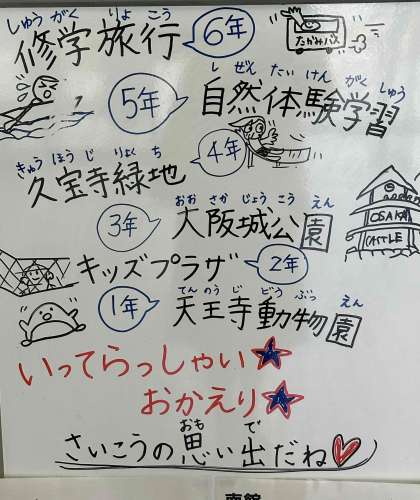 しゅうがくりょこう
修学旅行 6年
たかみバス
しぜんたいけんがくしゅう
5年 自然体験学習
きゅうほうじりょくち
久宝寺緑地 4年
おおさかじょうこうえん
3年 大阪城公園
OSAKA
CASTLE
キッズプラザ 2年
てんのうじどうぶつえん
1年 天王寺動物園
いってらっしゃい★
おかえり★
おもで
さいこうの思い出だね♡